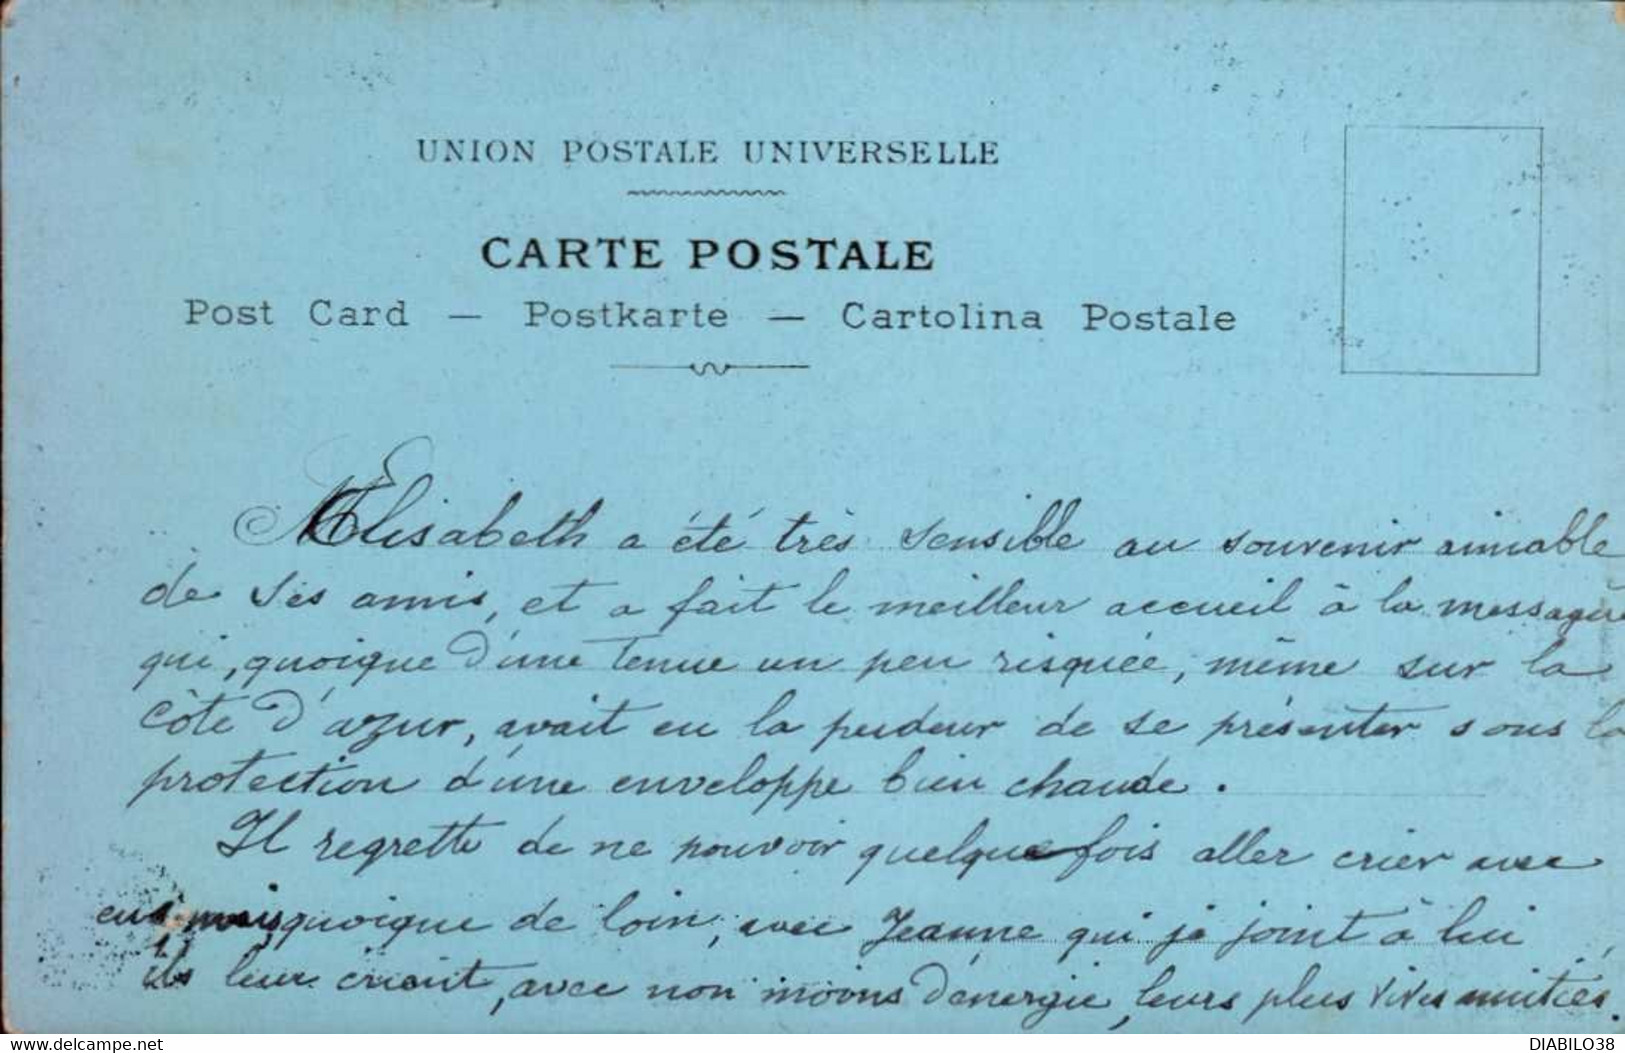 UNION POSTALE UNIVERSELLE
CARTE POSTALE
Post Card — Postkarte — Cartolina Postale
Elisabeth a été très sensible au souvenir aimable
de ses amis, et a fait le meilleur accueil à la messagère
qui, quoique d'une tenue un peu risquée, même sur la
côte d'azur, avait eu la pudeur de se présenter sous la
protection d'une enveloppe bien chaude.
Il regrette de ne pouvoir quelquefois aller crier avec
eux, mais, quoique de loin, avec Jeanne qui se joint à lui
ils leur crient, avec non moins d'énergie, leurs plus vives amitiés.
www.delcampe.net
DIABILO38